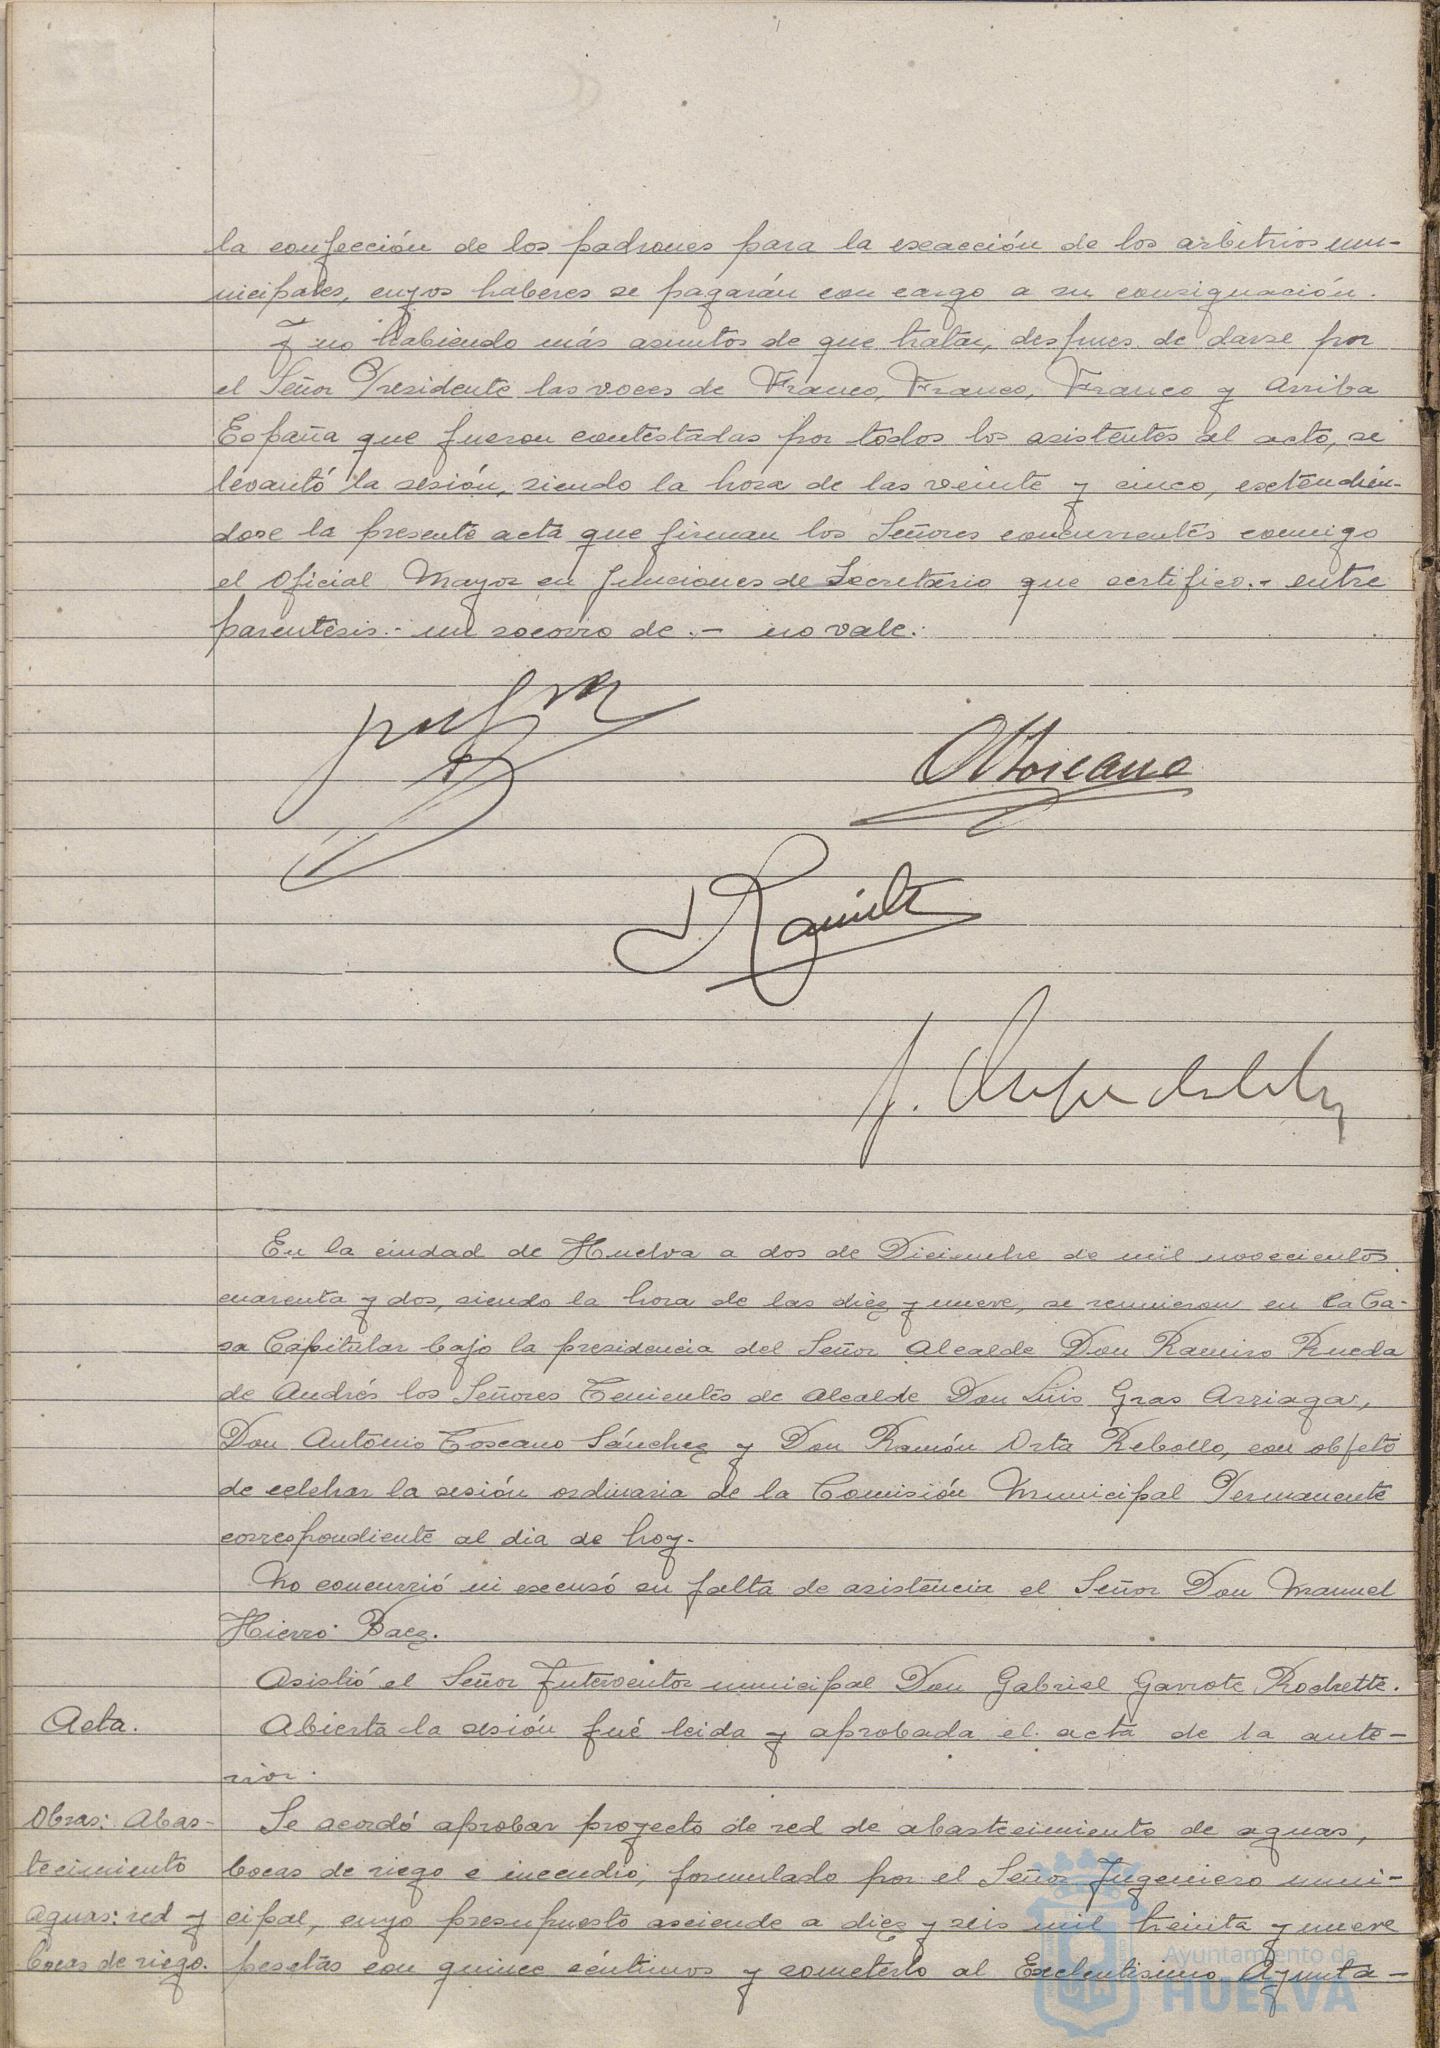 la confección de los padrones para la exacción de los arbitrios mu-
nicipales, cuyos haberes se pagarán con cargo a su consignación.
Y no habiendo más asuntos de que tratar, despues de darse por
el Señor Presidente las voces de Franco, Franco, Franco y Arriba
España que fueron contestadas por todos los asistentes al acto, se
levantó la sesión, siendo la hora de las veinte y cinco, extendién-
dose la presente acta que firman los Señores concurrentes conmigo
el Oficial Mayor en funciones de Secretario que certifico.- entre
parentesis.- un socorro de.- no vale.
AToscano
En la ciudad de Huelva a dos de Diciembre de mil novecientos
cuarenta y dos, siendo la hora de las diez y nueve, se reunieron en la Ca-
sa Capitular bajo la presidencia del Señor Alcalde Don Ramiro Rueda
de Andrés los Señores Tenientes de Alcalde Don Luis Gras Arriaga,
Don Antonio Toscano Sánchez y Don Ramón Orta Rebollo, con objeto
de celebrar la sesión ordinaria de la Comisión Municipal Permanente
correspondiente al dia de hoy.
No concurrió ni excusó su falta de asistencia el Señor Don Manuel
Hierro Baez.
Asistió el Señor Interventor municipal Don Gabriel Garrote Rochette.
Acta.
Abierta la sesión fué leida y aprobada el acta de la ante-
rior.
Obras: Abas-
tecimiento
aguas: red y
bocas de riego.
Se acordó aprobar proyecto de red de abastecimiento de aguas,
bocas de riego e incendio, formulado por el Señor Ingeniero muni-
cipal, cuyo presupuesto asciende a diez y seis mil treinta y nueve
pesetas con quince céntimos y someterlo al Excelentisimo Ayunta-
Ayuntamiento de
HUELVA